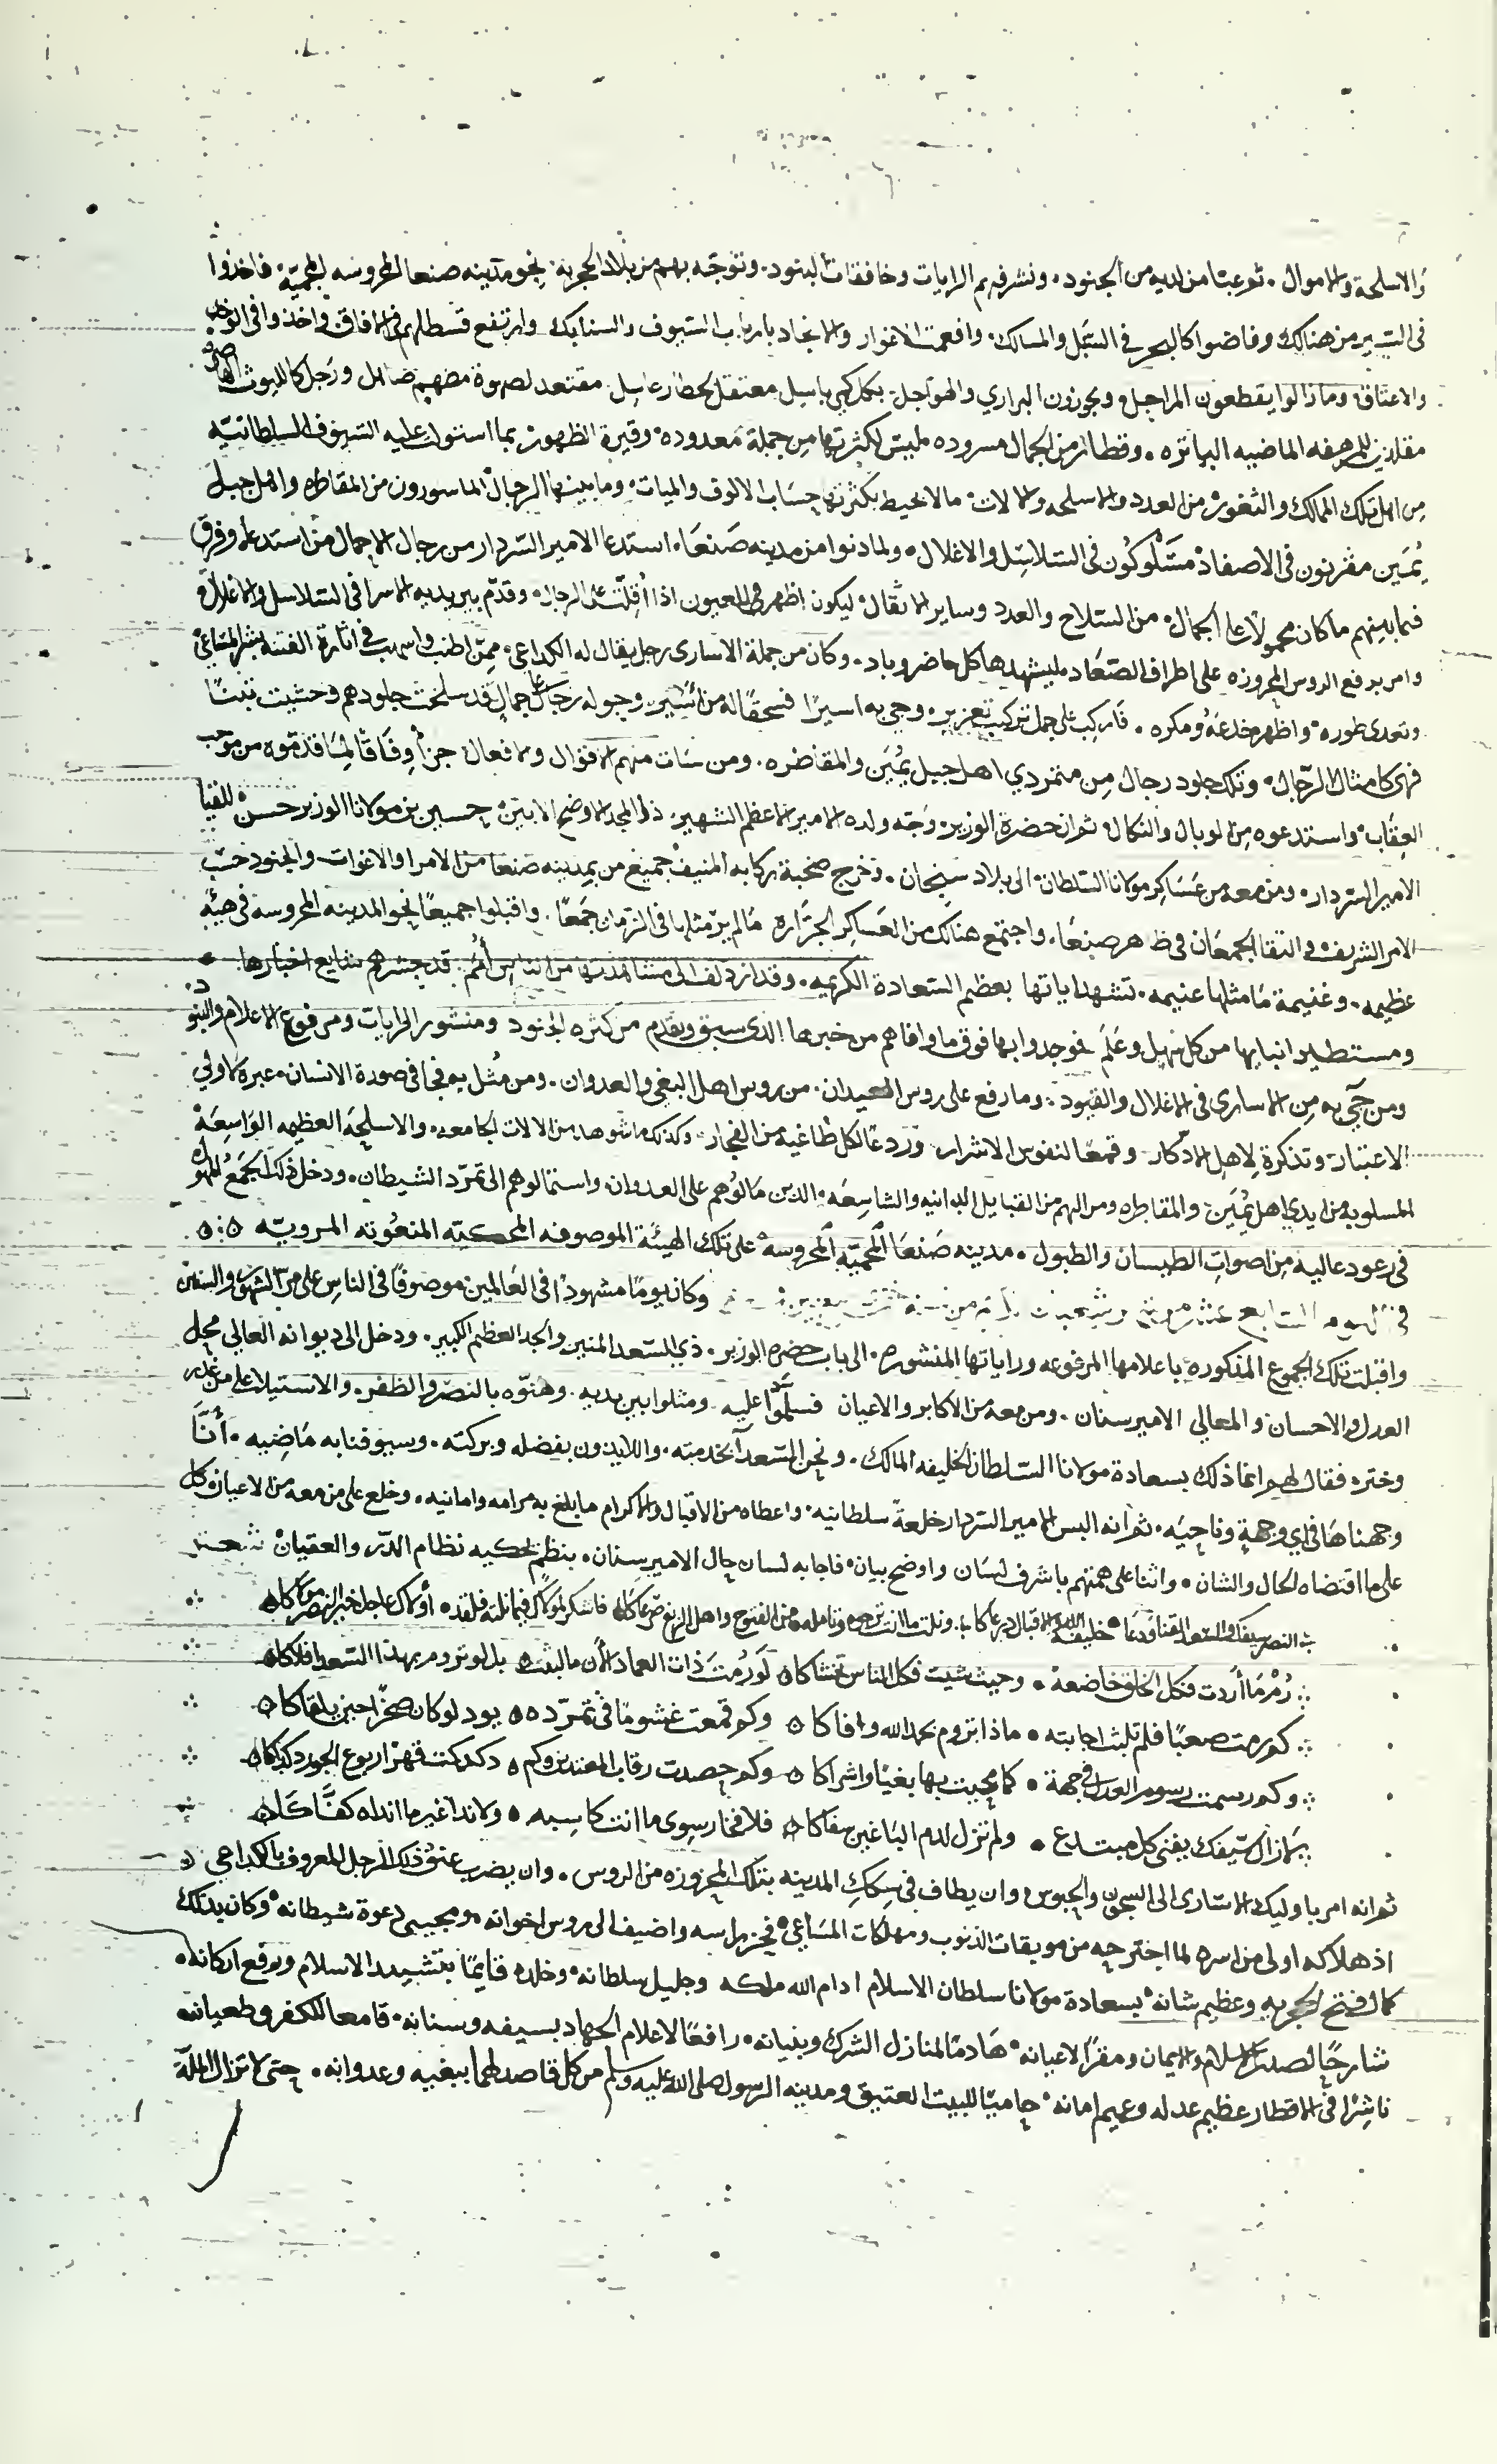 والاسلحة والاموال. ثم عبّا من لديه من الجنود. ونشر فيهم الرايات وخافقات البنود. وتوجّه بهم من بلاد الحجرية. نحو مدينه صنعا المحروسه المحميّة. فاخذوا
فى السير من هنالك وفاضوا كالبحر في السّبل والمسالك. وافعمت الاغوار والانجاد بارباب السّيوف والسنابك وارتفع قسطلهم فى الافاق واخذوا فى الوخد
والاعناق. وما زالوا يقطعون المراحل. ويجوزون البراري والهواجل. بكل كمي باسل معتقل لخطار عاسل. مقتعد لصهوة مضهم صاهل ورجل كالليوث
مقلدين للمرهفه الماضيه الباتره. وقطار من الجمال مسروده ملبّس لكثرتها من جملة معدوده. وقيرة الظهور بما استولت عليه السّيوف السلطانيّه
من اهل تلك الممالك والثغور من العدد والاسلحه والالات. مالا يحيط بكثرتها حسَاب الالوف والميات. وما بينها الرجال الماسورون من المقاطره واهل جبل
يُمَين مقرنون فى الاصفاد مَسْلُوكُون فى السّلاسِل والاغلال. ولما دنوا من مدينه صَنعَا. استدعا الامير السّردار من رجال الاجمال من استدعا. وفرق
فيما بينهم ما كان محمولًا على الجمال. من السّلاح والعدد وساير الاثقال. ليكون اظهر فى للعيون اذا اُقِلّت على الرجال. وقدّم بين يديه الاسرا فى السّلاسل والاغلال
وامر برفع الروس المحزوزه على اطراف الصّعَاد. ليشهدها كل حاضر وباد. وكان من جملة الاسارى رجل يقال له الكداعي. ممن اطنب واسهب فى اثارة الفتنه بشر المساعي
وتعدى طوره. واظهر خدعه ومكره. فاركب على جمل تركيب تعزير. وجي به اسيرًا فسحقًا له من اسير. وحوله رجال على جمال قد سلخت جلودهم وحشيت تبنًا
فهى كامثال الرّجال. وتلك جلود رجال من متمردي اهل جبل يُمَين والمقاطره. ومن سَات منهم الاقوال والافعال جزاً وفَاقًا لما قدّموه من موجب
العقاب. واستدعوه من الوبال والنكال. ثم ان حضرة الوزير. وجّه ولده الامير الاعظم الشهير. ذا المجد الاوضح الابين. حسين بن مولانا الوزير حسن. للقيا
الامير السردار. ومن معه من عَسَاكر مولانا السّلطان. الى بلاد سنحان. وخرج صحبة ركابه المنيف جميع من بمدينه صنعا من الامرا والاغوات والجنود حسب
الامر الشريف. والتقا الجمعَان فى ظاهر صنعا. واجتمع هنالك من العسَاكر الجرّاره مَا لم ير مثلها فى الزمان جمَعًا. واقبلوا جميعًا نحو المدينه المحروسه فى هيئة
عظيمه. وغنيمة مَا مثلها غنيمه. تشهد اياتها بعظيم السّعادة الكريمه. وقد ازدلف الى مشاهدتها من الناس أُمُم. قد حشرهم شايع اخبارها.
ومستطير انبايها من كل سهل وعَلَم. فوجدوا بها فوق ما وافاهم من خبرها الذى سبق وتقدم من كثره الجنود ومنشور الرايات ومرفوع الاعلام والبنود.
ومن جي به من الاسارى فى الاغلال والقيود. وما رفع على روس العيدان. من روس اهل البغي والعدوان. ومن مُثل به فجا فى صورة الانسان. عبرة لاولي
الاعتبار. وتذكرة لاهل الادّكار. وقمعًا لنفوس الاشرار. وردعًا لكل طاغية من الفجار. وكذلك ما شوهد من الالات الجامعه. والاسلحه العظيمه الواسِعَة
المسلوبه من ايدي اهل يُمَين. والمقاطره ومن اليهم من القبايل الدانيه والشاسِعَه. الذين مَالَوْهم على العدوان. واستمالوهم الى تمرّد الشيطان. ودخل ذلك الجمَعُ المهول
فى رعود عاليه من اصوات الطبسان والطبول. مدينه صَنعَا المحميّه المحروسه على تلك الهيئة الموصوفه المحكيّه المنعُوته المرويّه
فى اليوم السابع عشر من وكان يومًا مشهودا فى العالمين موصوفًا فى الناس على مر الشهور والسنين
واقبلت تلك الجموع المذكوره باعلامها المرفوعه وراياتها المنشوره. الى باب حضره الوزير. ذي السعد المنين والمجد العظيم الكبير. ودخل الى ديوانه العالي محل
العدل والاحسان والمعالي الامير سنان. ومن معه من الاكابر والاعيان فسلّموا عليه ومثلوا بين يديه. وهنّوه بالنصر والظفر. والاستيلا على من غدر
وختر. فقال لهم انما ذلك بسعادة مولانا السّلطان الخليفه المالك. ونحن المتسعدا بخدمته. واللايذون بفضله وبركته. وسيوفنا به مَاضِيه. أَنَّا
وجهناهَا فى اي وجهة وناحيَه. ثم انه البس الامير السّردار خلعة سلطانيه. واعطاه من الاقبال والاكرام ما بلغ به مرامه وامانيه. وخلع على من معه من الاعيان كل
على ما اقتضاه الحال والشان. واثنا على همتهم باشرف لسَان واوضح بيان. فاجابه لسان حال الامير سنان. بنظم يحكيه نظام الدّر والعقيان
رُمْ مَا أردت فكل الخلق خاضعة. وحيث شيت فكل الناس تخشاكا لو رُمتَ ذات العماد الأن ما لبثت بل لو تروم بهذا السّعد افلاكا
كم رمت صعبًا فلم تلبث اجابته. ماذا تروم بحمد الله وافاكا وكم قمعت غشومًا فى تمرّده يود لو كان صخرًا حين يلقاكا
وكم رسمت رسوم العدل فى جهة. كما محيت بها بغيًا واشراكا وكم حصدت رقاب المعتدين وكم. دكدكت قهرًا ربوع الجور دكداكا
ما زال سيفك يفنى كل مبتدع. ولم تزل لدم البَاغين سفاكا فلا فخار سِوى ما انت كاسِبه. ولا ندا غير ما انداه كفَّاكَا
ثم انه امر باوليك الاسارى الى السجون والحبوس. وان يطاف فى سِكك المدينه بتلك المحزوزه من الروس. وان يضرب عنق ذلك الرجل المعروف بالكداعي
اذ هلاكه اولى من اسره لما اجترحه من موبقات الذنوب ومهلكات المسَاعي. فحز راسه واضيف الى روس اخوانه. ومجيبي دعوة شيطانه. وكان بذلك
كمال فتح الحجريه وعظيم شانه. بسعادة مولانا سلطان الاسلام ادام الله ملكه وجليل سلطانه. وخلده قايمًا بتشييد الاسلام ورفع اركانه.
شارحًا لصدر الاسلام والايمان ومقرًا لاعيانه. هَادمًا لمنازل الشرك وبنيانه. رافعًا لاعلام الجهاد بسيفه وسنانه. قامعا للكفر وطغيانه
ناشِرًا فى الاقطار عظيم عدله وعميم امانه. حاميًا للبيت العتيق ومدينه الرسول صلى الله عليه وسلم من كل قاصد لهما ببغيه وعدوانه. حتى لا تزال الملّة